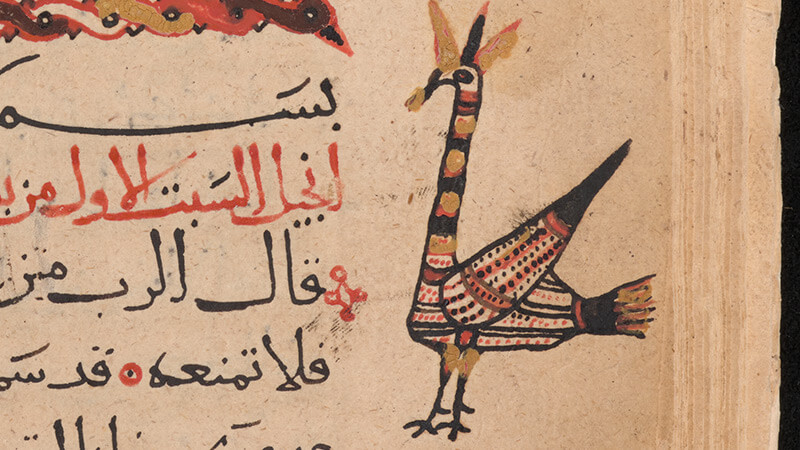 بسم
انجيل السبت الاول من
قال الرب من
فلا تمنعه قد سم